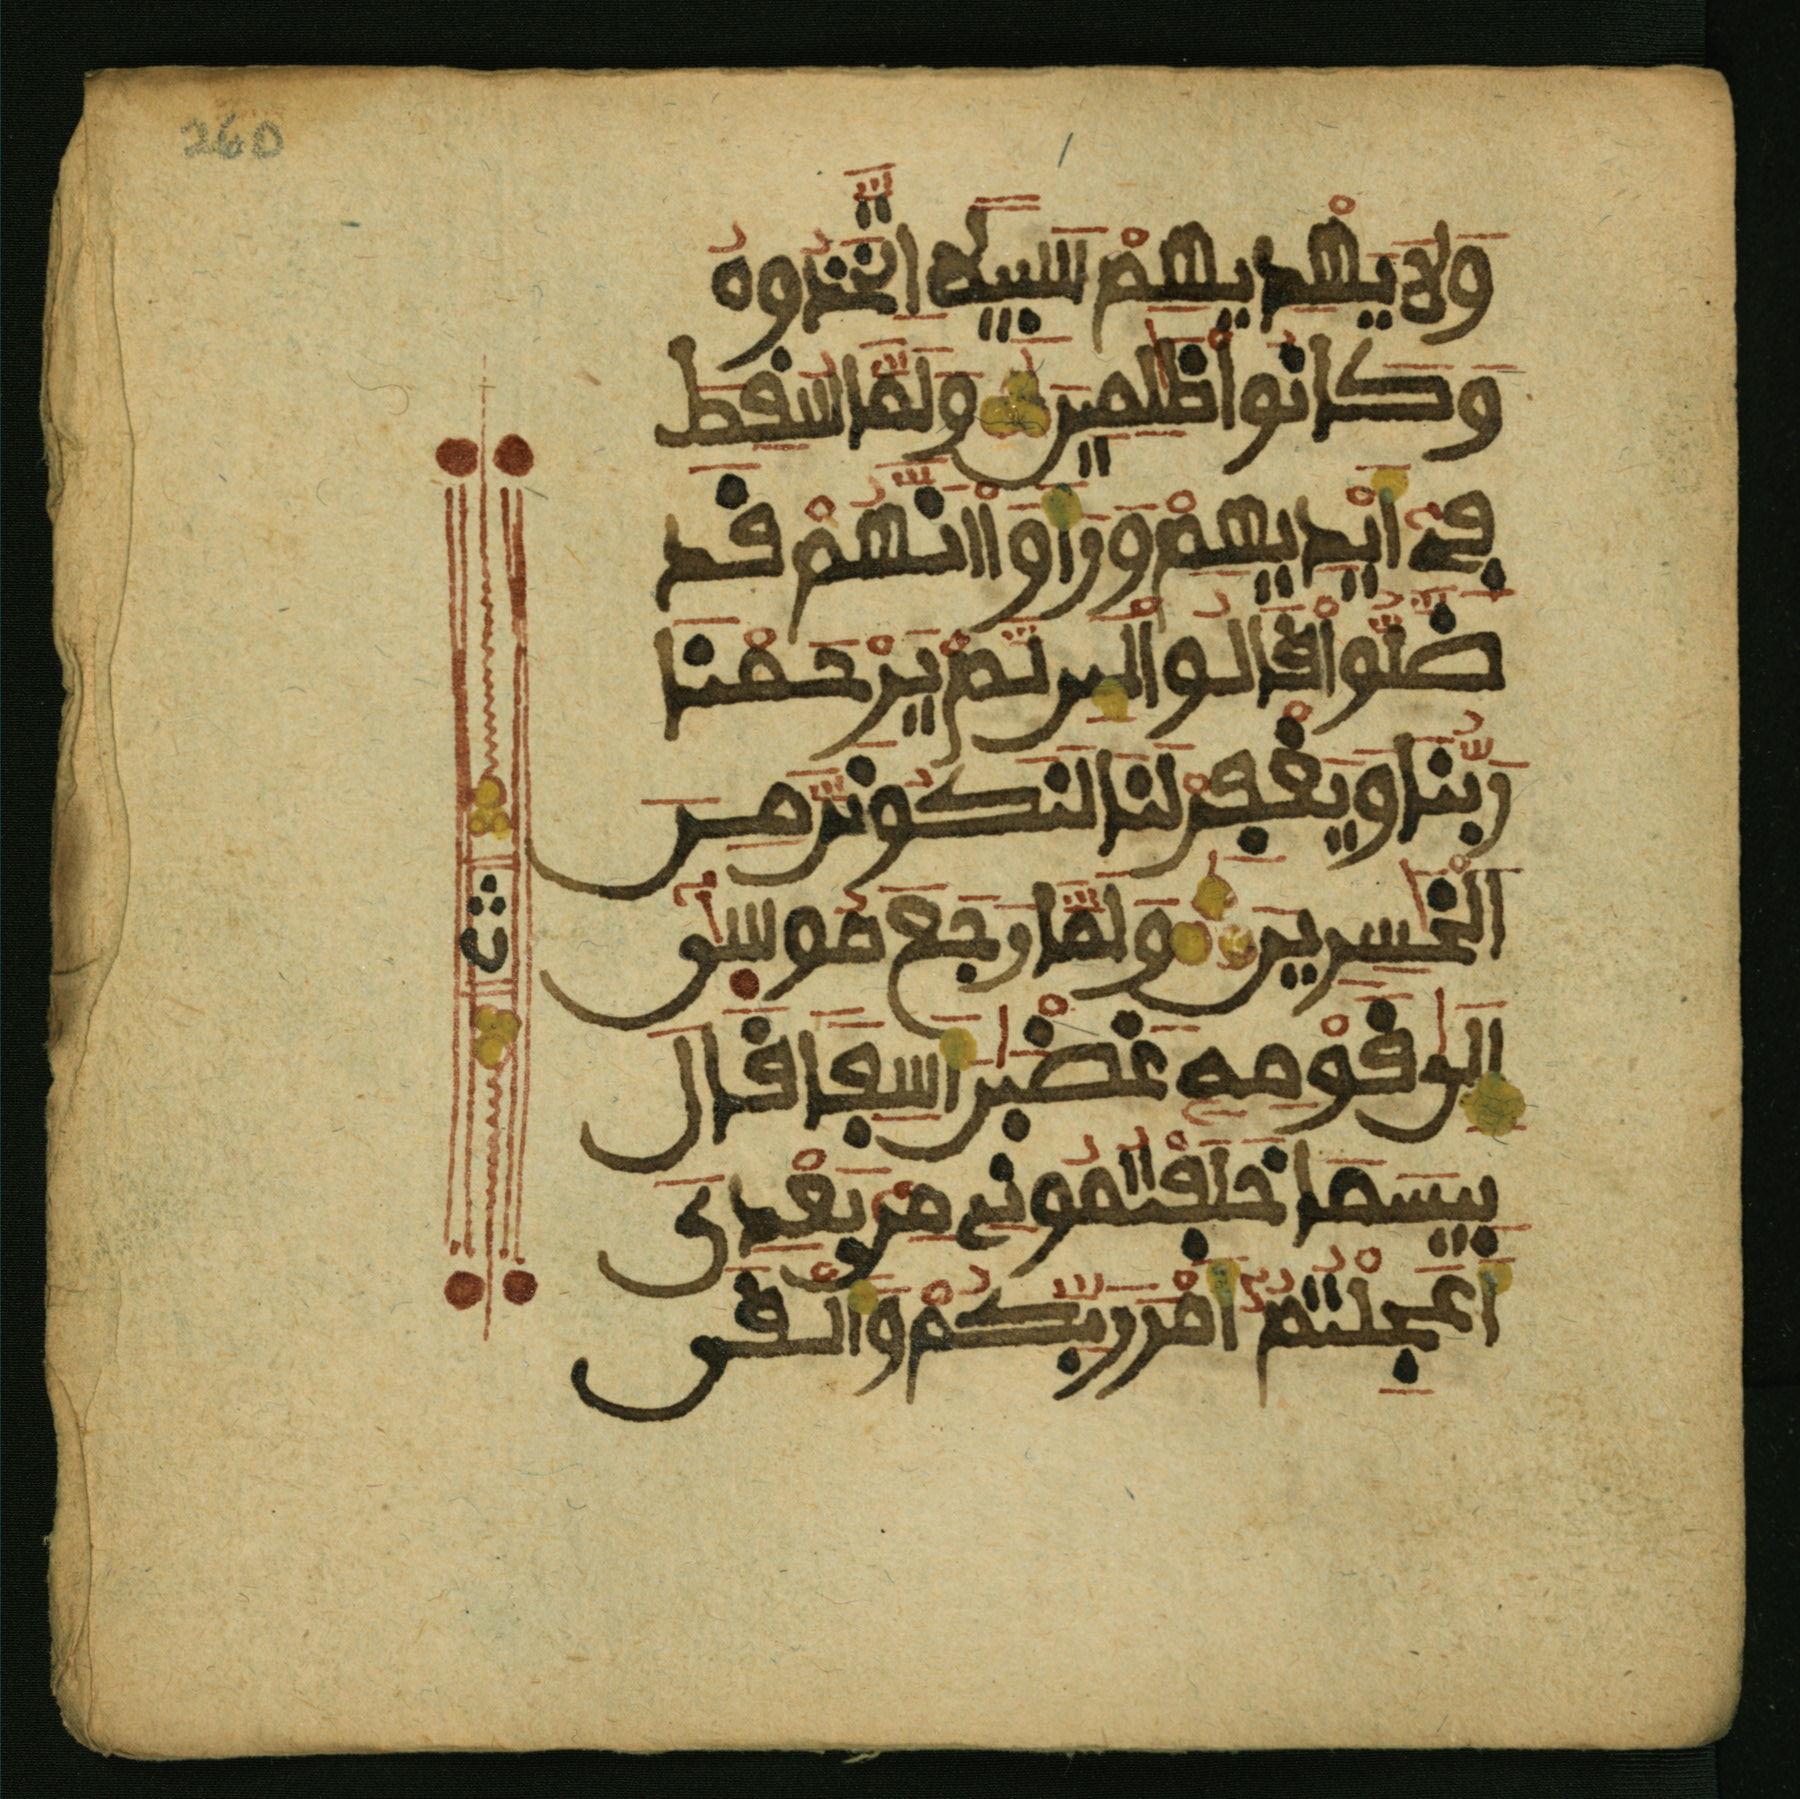 260
ولا يهديهم سبيلا اتخذوه
وكانوا ظلمين ولما سقط
في أيديهم ورأوا أنهم قد
ضلوا قالوا لئن لم يرحمنا
ربنا ويغفر لنا لنكونن من
الخسرين ولما رجع موسى
إلى قومه غضبن أسفا قال
بيسما خلفتموني من بعدي
أعجلتم أمر ربكم وألقى
ث